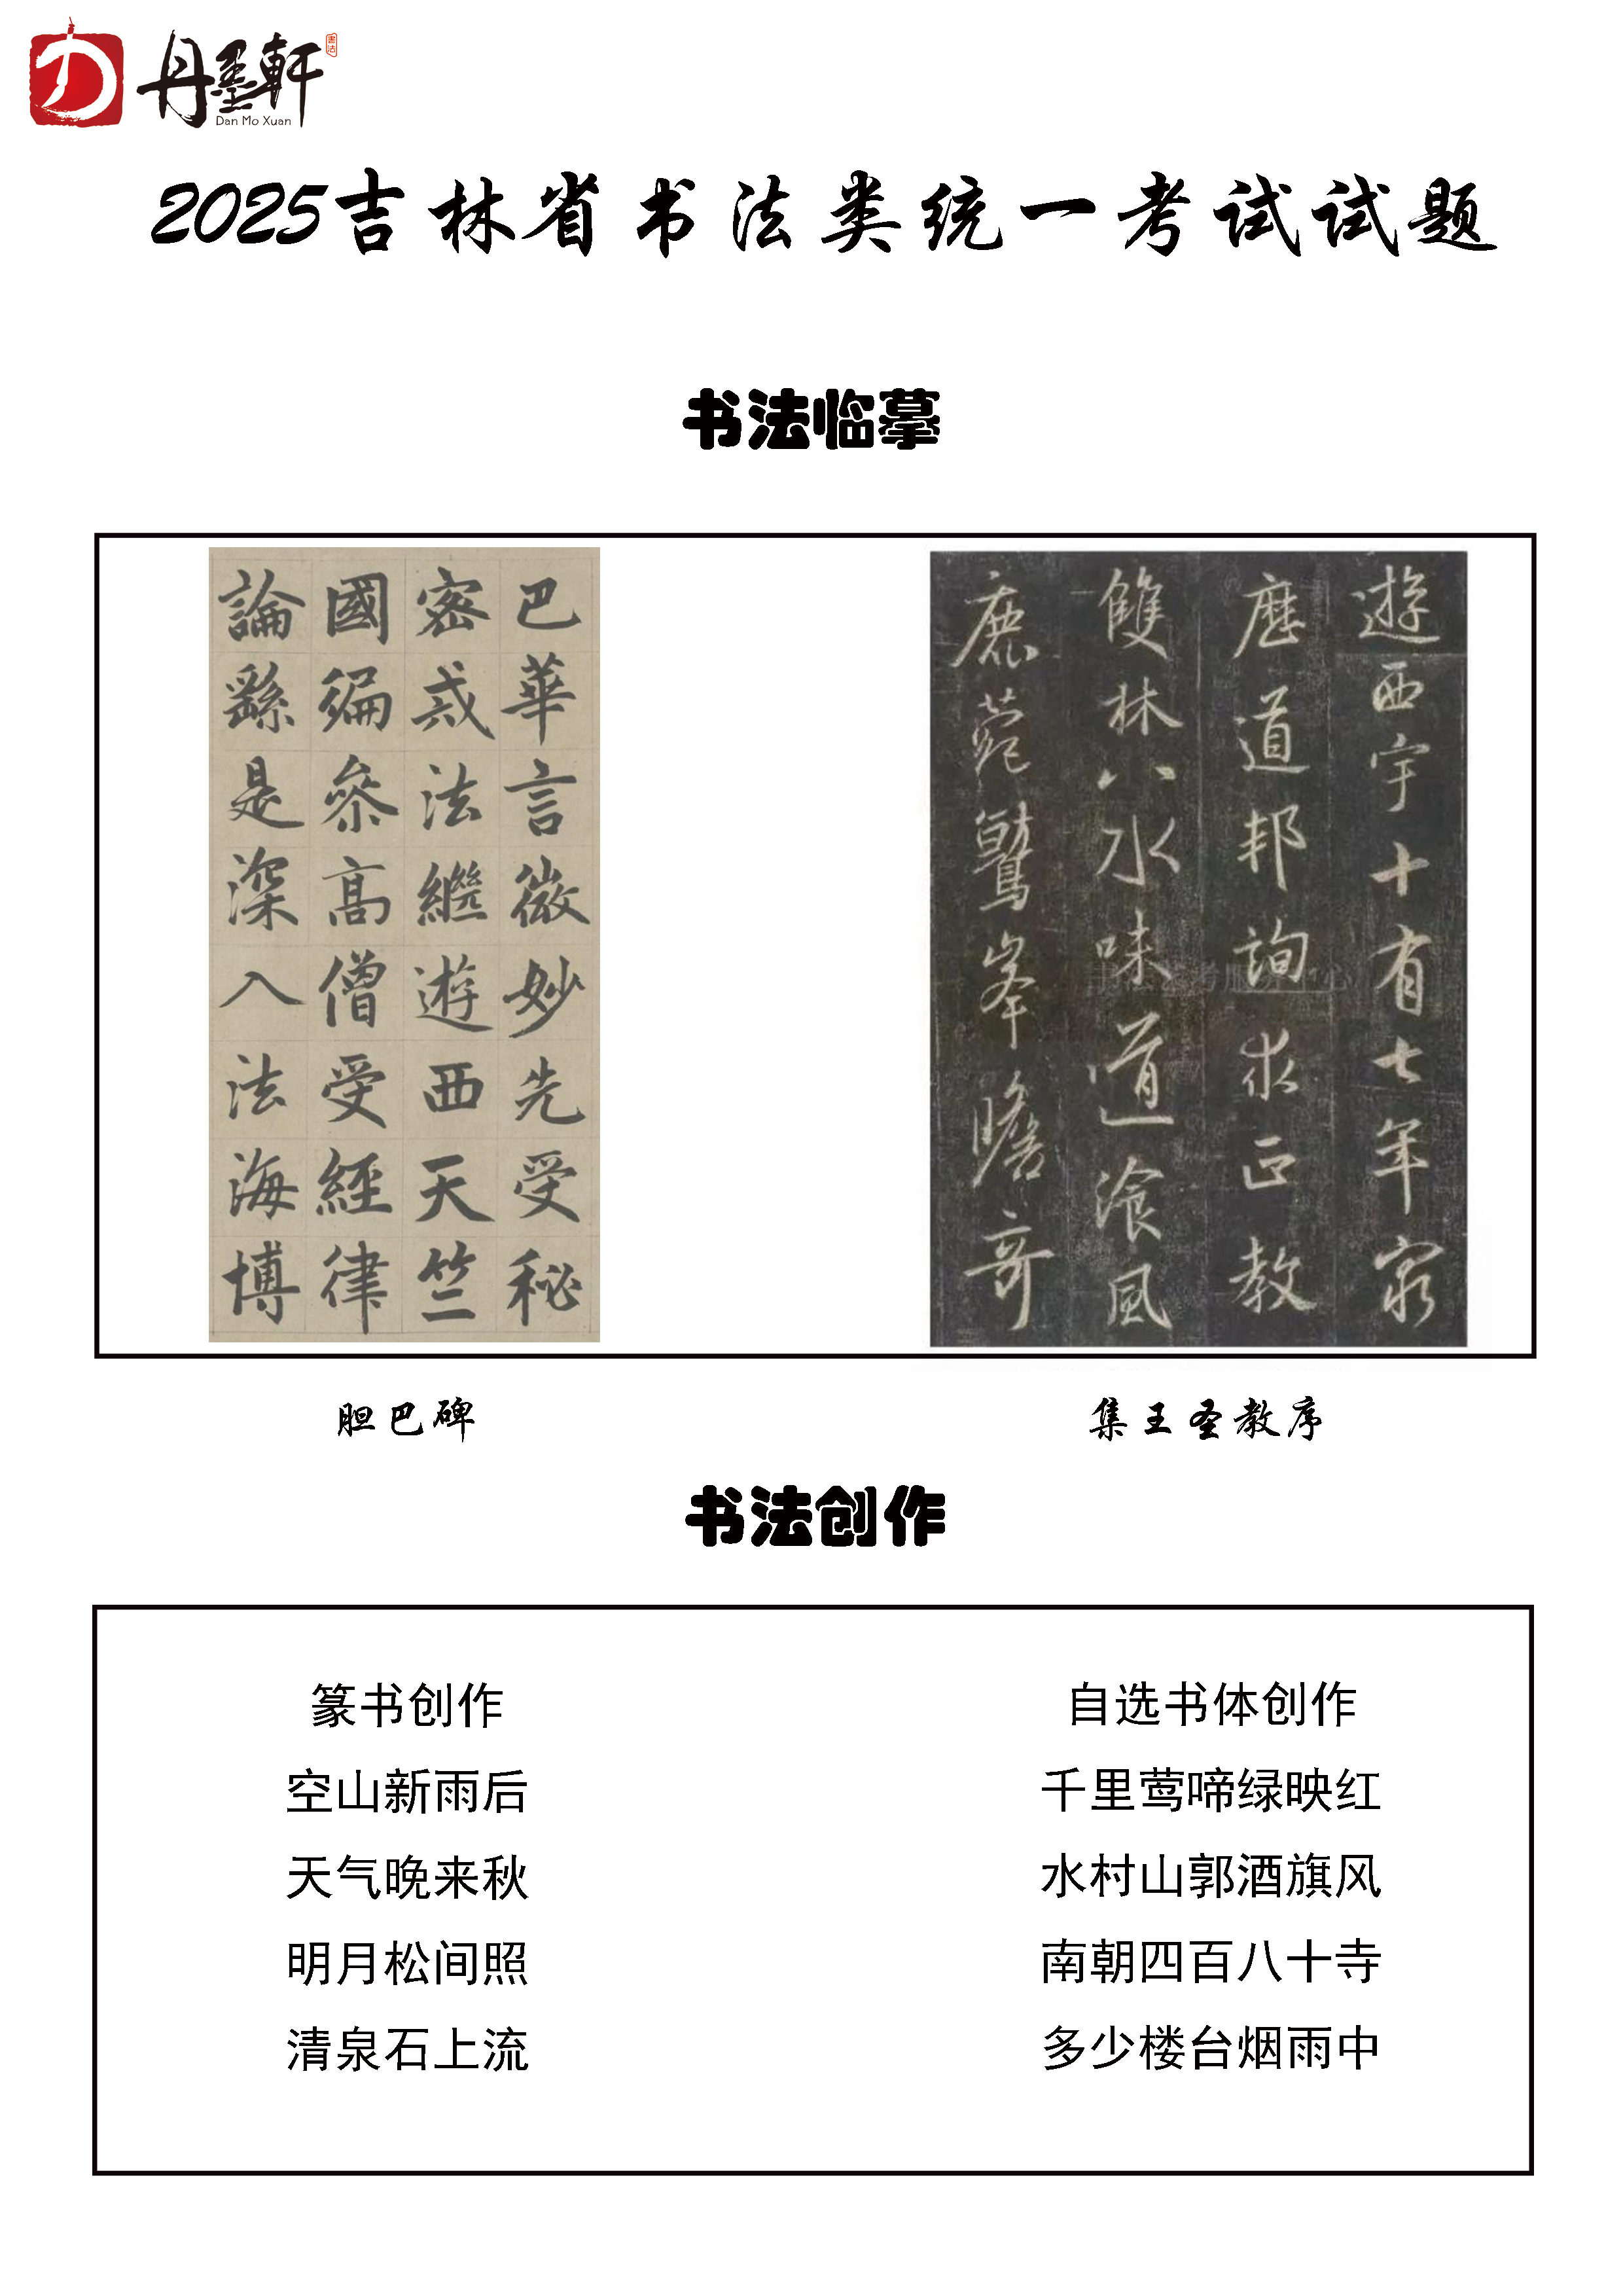 丹墨軒
書法
Dan Mo Xuan
2025吉林省书法类统一考试试题
书法临摹
巴華言微妙先受秘
密戒法繼遊西天竺
國徧參高僧受經律
論繇是深入法海博
遊西宇十有七年窮
歷道邦詢求正教
雙林八水味道飡風
鹿菀鷲峯瞻奇
胆巴碑
集王圣教序
书法创作
篆书创作
空山新雨后
天气晚来秋
明月松间照
清泉石上流
自选书体创作
千里莺啼绿映红
水村山郭酒旗风
南朝四百八十寺
多少楼台烟雨中